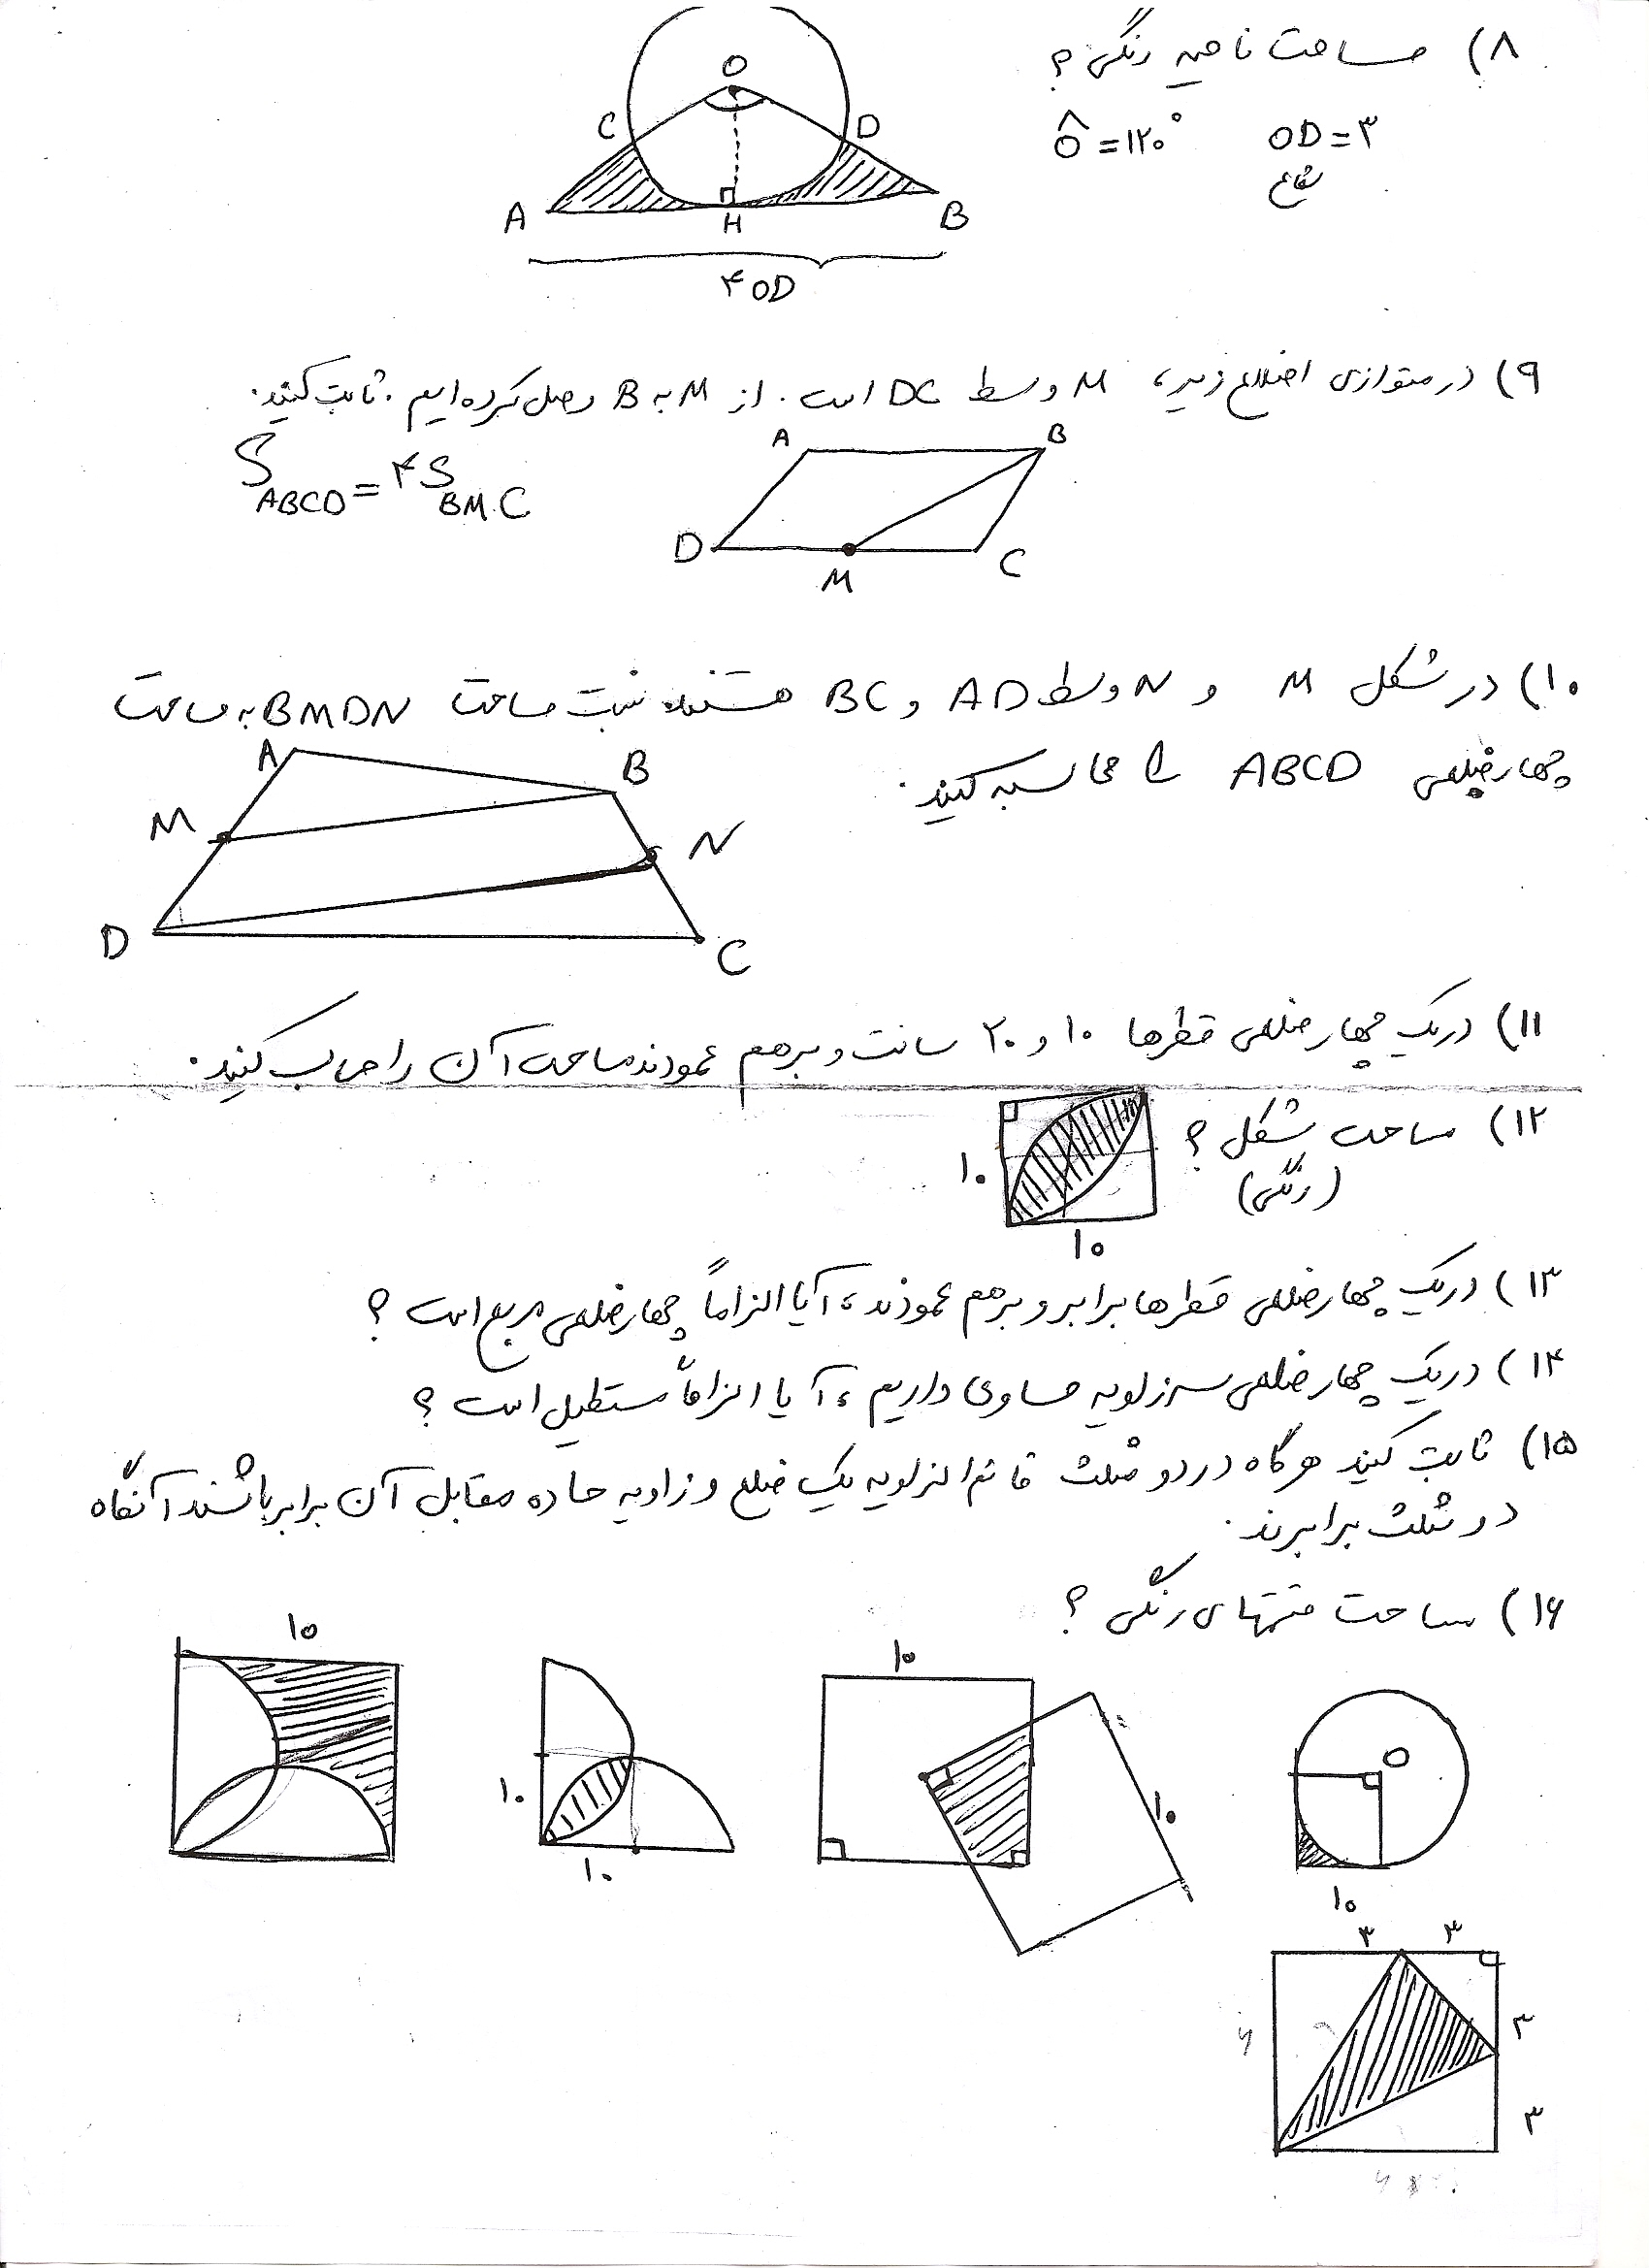 ۸) مساحت ناحیه رنگی؟
Ô = ۱۲۰° OD = ۳
شعاع
O
C D
A H B
۴ OD
۹) در متوازی اضلاع زیر، M وسط DC است. از M به B وصل کرده ایم. ثابت کنید.
S ABCD = ۴ S BMC
A B
D M C
۱۰) در شکل M و N وسط AD و BC هستند نسبت مساحت BMDN به مساحت
چهارضلعی ABCD را محاسبه کنید.
A B
M N
D C
۱۱) در یک چهارضلعی قطرها ۱۰ و ۲۰ سانت و برهم عمودند مساحت آن را حساب کنید.
۱۲) مساحت شکل؟
(رنگی)
۱۰
۱۰
۱۳) در یک چهارضلعی قطرها برابر و برهم عمودند، آیا الزاماً چهارضلعی مربع است؟
۱۴) در یک چهارضلعی سه زاویه مساوی داریم، آیا الزاماً مستطیل است؟
۱۵) ثابت کنید هرگاه در دو مثلث قائم الزاویه یک ضلع و زاویه حاده مقابل آن برابر باشند آنگاه
دو مثلث برابرند.
۱۶) مساحت قسمتهای رنگی؟
۱۰ ۱۰
O
۱۰ ۱۰
۱۰ ۱۰
۳ ۳
۶ ۳
۳
۶